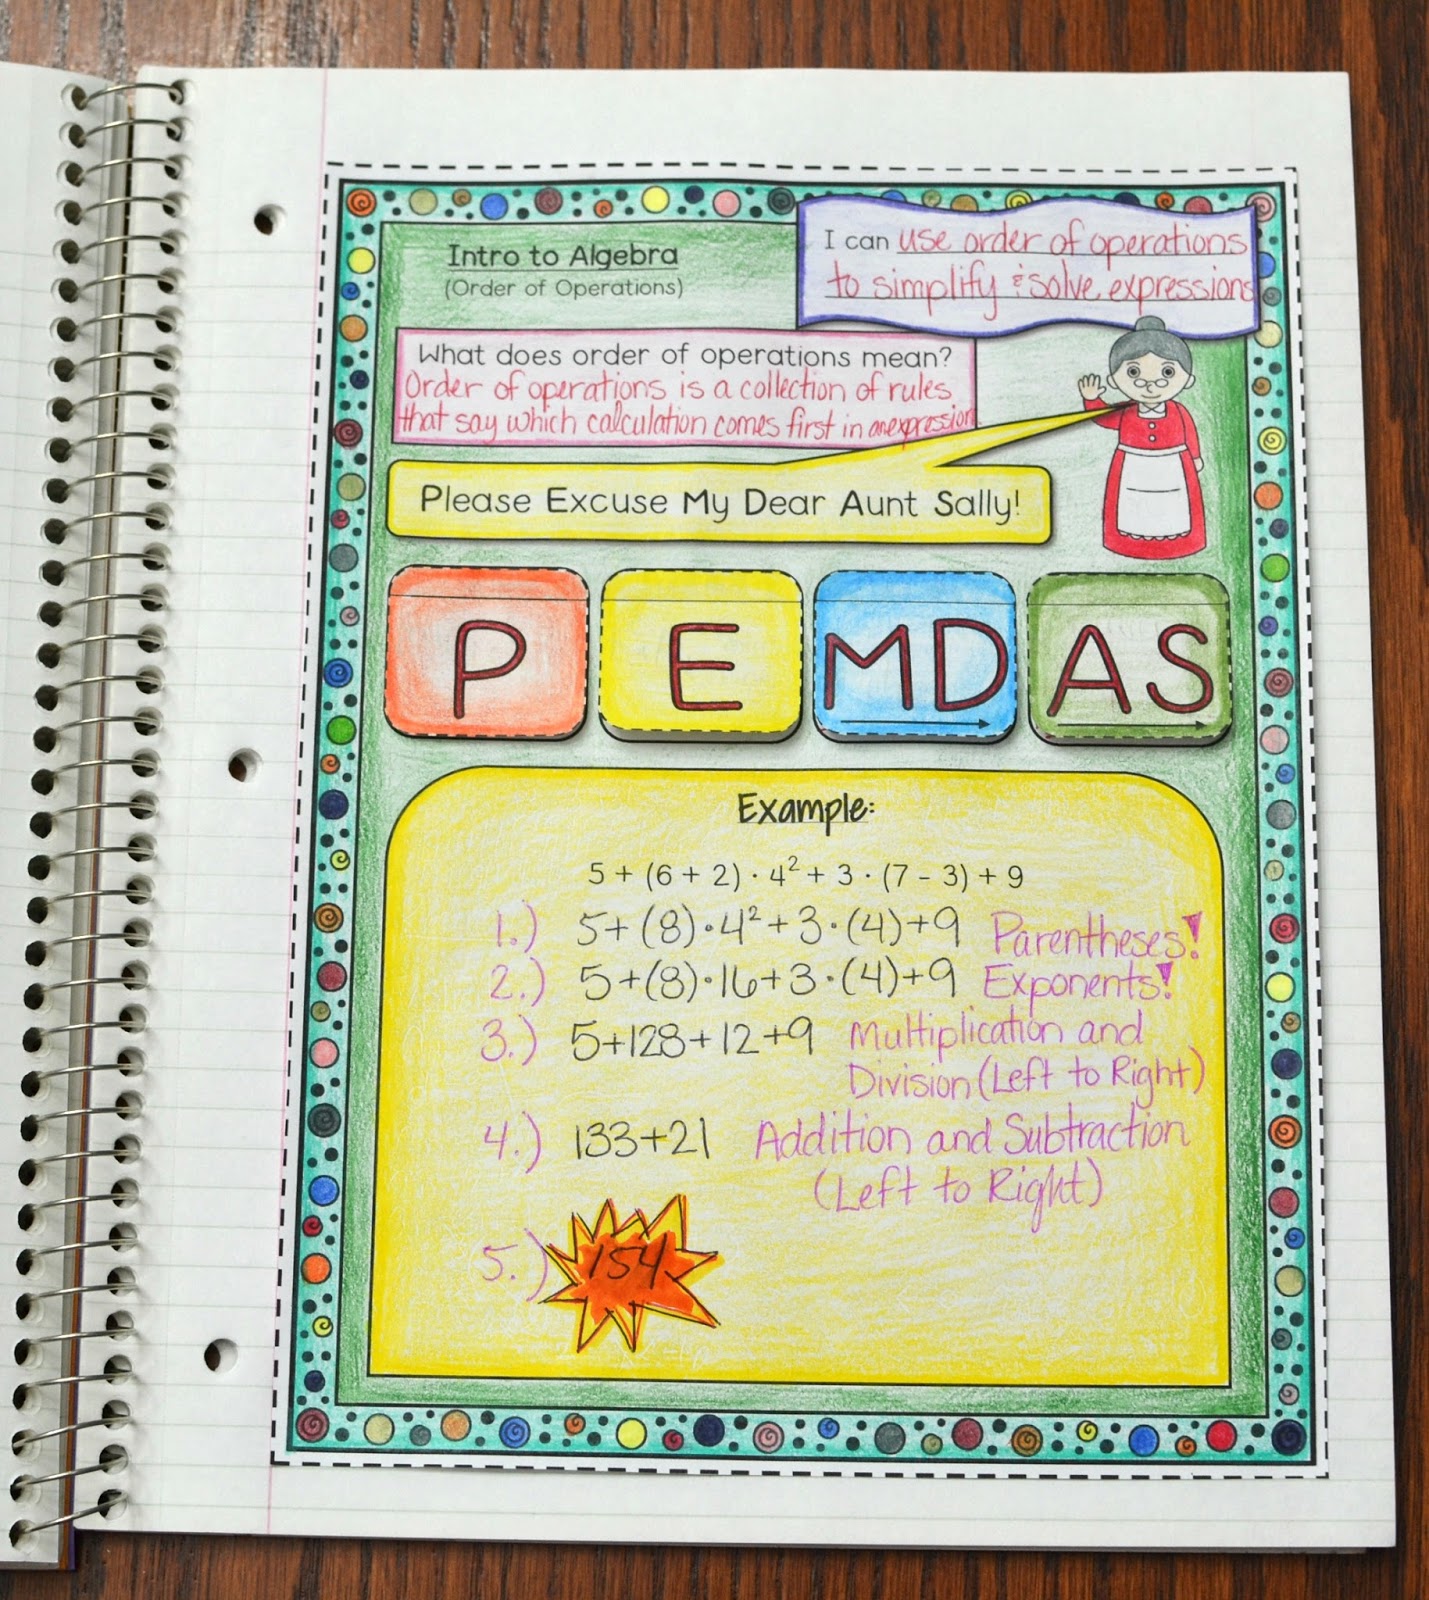 Intro to Algebra
(Order of Operations)
I can use order of operations
to simplify & solve expressions
What does order of operations mean?
Order of operations is a collection of rules
that say which calculation comes first in an expression.
Please Excuse My Dear Aunt Sally!
P E MD AS
Example:
5 + (6 + 2) · 4² + 3 · (7 - 3) + 9
1.) 5+(8)·4²+3·(4)+9 Parentheses!
2.) 5+(8)·16+3·(4)+9 Exponents!
3.) 5+128+12+9 Multiplication and
Division (Left to Right)
4.) 133+21 Addition and Subtraction
(Left to Right)
5.) 154